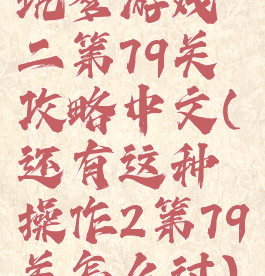 坑爹游戏
二第79关
攻略中文(
还有这种
操作2第79
关怎么过)